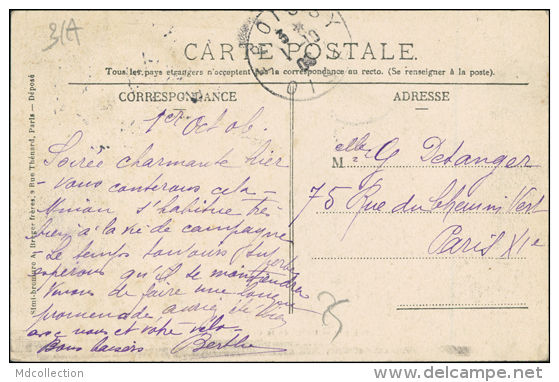 3/A
CROISSY
OISE
CARTE POSTALE.
Tous les pays étrangers n'acceptent pas la correspondance au recto. (Se renseigner à la poste).
CORRESPONDANCE
ADRESSE
Simi-bromure A. Breger frères, 9 Rue Thénard, Paris — Déposé
1er Oct 06.
Soirée charmante hier
Vous conterons cela
s'habitue très
bien à la vie de campagne
Le temps toujours superbe
espérons qu'il se maintiendra
Venons de faire une longue
promenade,
avec nous et votre vélo
Bons baisers Berthe
Melle G Detanger
75 Rue du Chemin Vert
Paris XIe
Mdcollection
www.delcampe.net